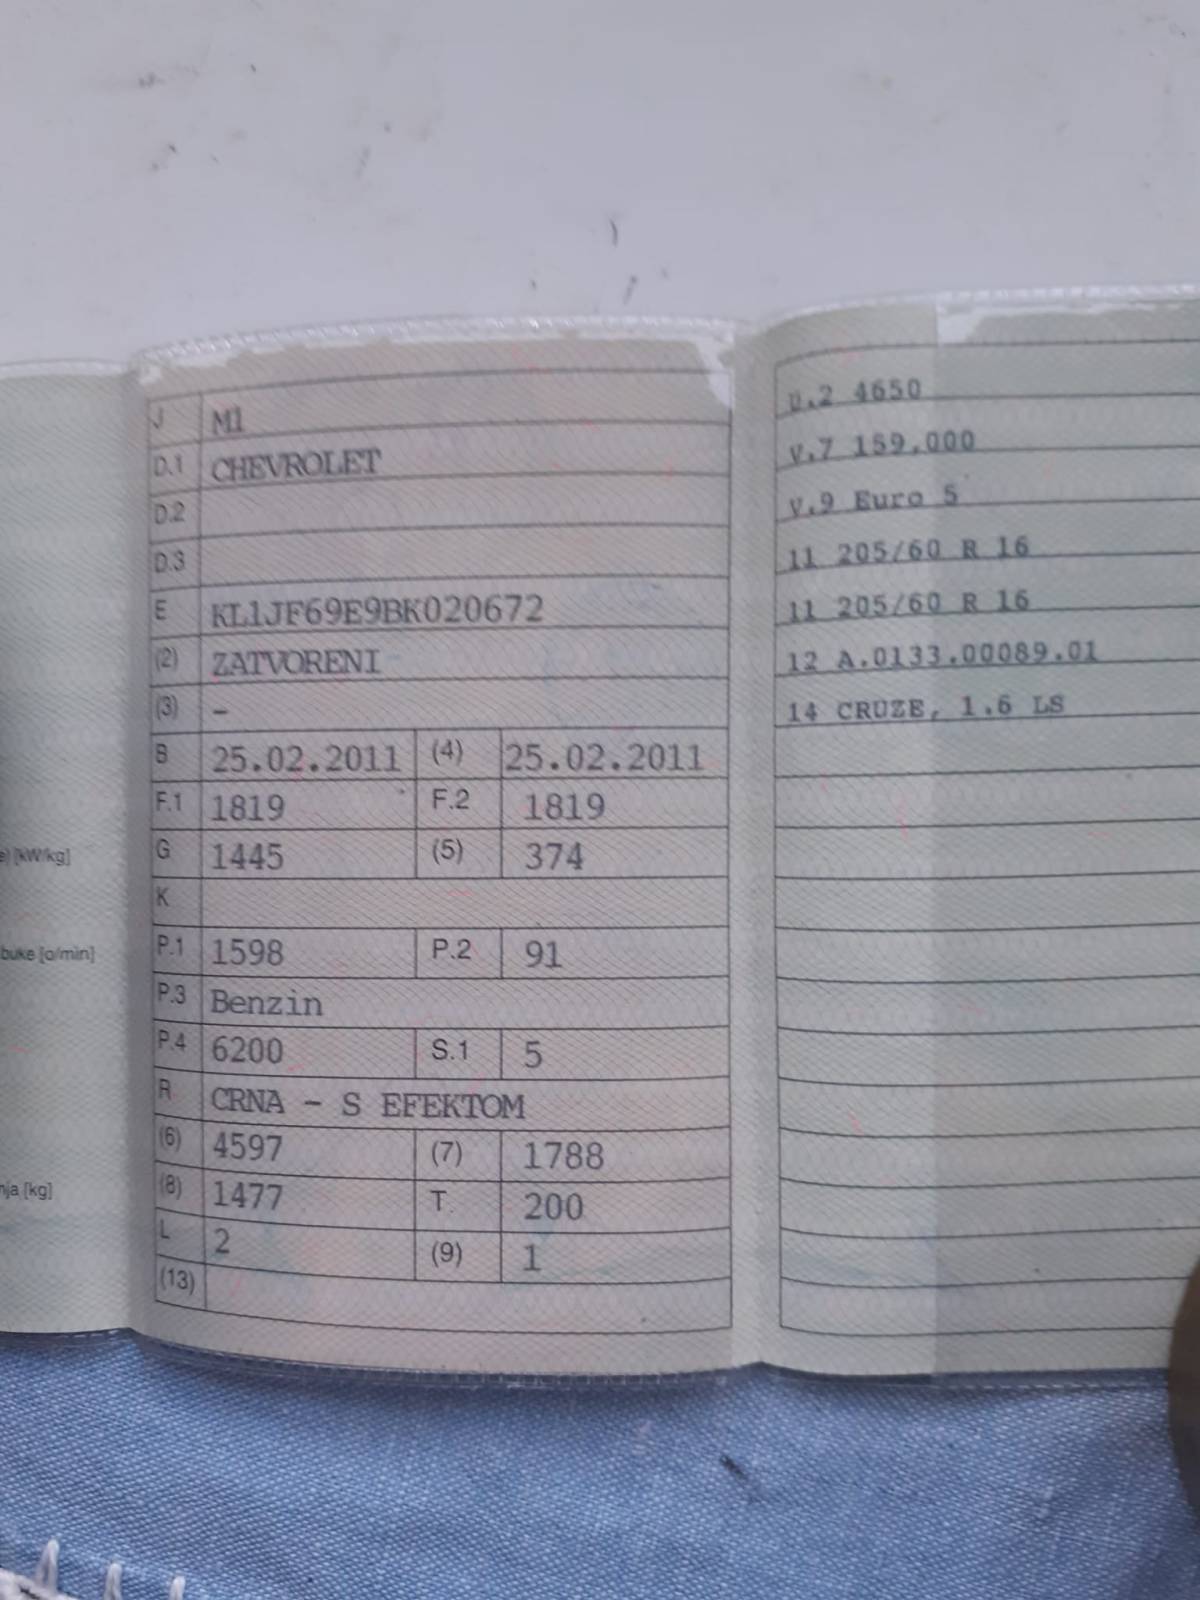 e) [kW/kg]
buke [o/min]
nja [kg]
J M1
D.1 CHEVROLET
D.2
D.3
E KL1JF69E9BK020672
(2) ZATVORENI
(3) –
B 25.02.2011 (4) 25.02.2011
F.1 1819 F.2 1819
G 1445 (5) 374
K
P.1 1598 P.2 91
P.3 Benzin
P.4 6200 S.1 5
R CRNA – S EFEKTOM
(6) 4597 (7) 1788
(8) 1477 T. 200
L 2 (9) 1
(13)
U.2 4650
V.7 159,000
V.9 Euro 5
11 205/60 R 16
11 205/60 R 16
12 A.0133.00089.01
14 CRUZE, 1.6 LS